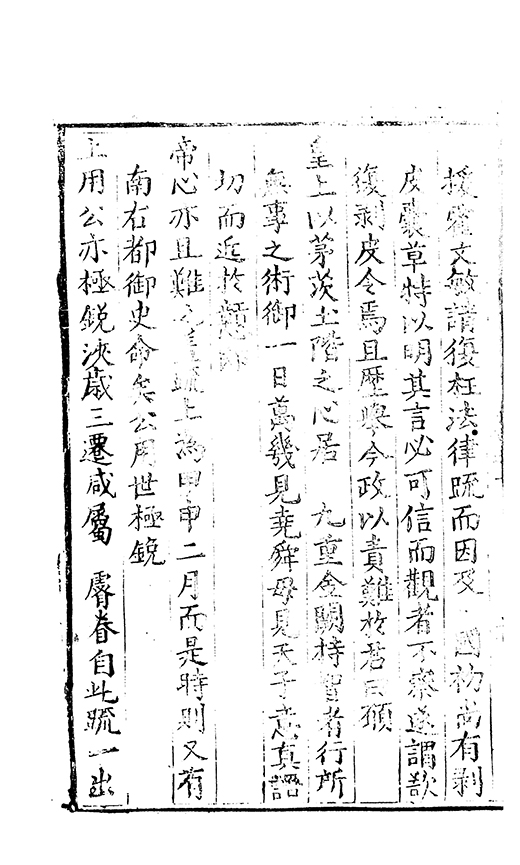 援霍文敏請復枉法律疏而因及 國初尚有剥
皮囊草特以明其言必可信而觀者不察遂謂欲
復剥皮令焉且歷舉今政以責難於君曰願
皇上以茅茨土階之心居 九重金闕持聖者行所
無事之術御一日萬幾見堯舜毋見天子意真語
切而近於
帝心亦且難之是疏上為甲申二月而是時則又有
南右都御史命矣公用世極銳
上用公亦極鋭浹歲三遷咸屬 睿眷自此疏一出